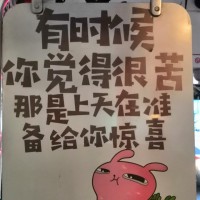 有时候
你觉得很苦
那是上天在准
备给你惊喜